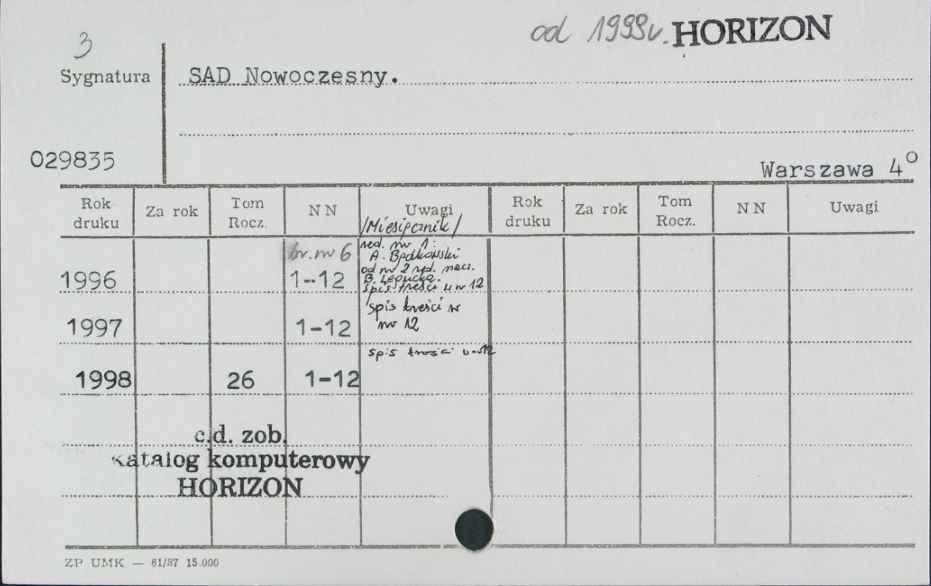 3
od 1999r. HORIZON
Sygnatura SAD Nowoczesny.
029835
Warszawa 4°
Rok druku Za rok Tom Rocz. NN Uwagi Rok druku Za rok Tom Rocz. NN Uwagi
/Miesięcznik/
br. nr 6 red. nr 1:
A. Bądkowski
od nr 2 red. nacz.
1996 1-12 B.
Spis treści w nr 12
spis treści w
1997 1-12 nr 12
spis treści
1998 26 1-12
c.d. zob.
katalog komputerowy
HORIZON
ZP UMK — 61/87 15.000